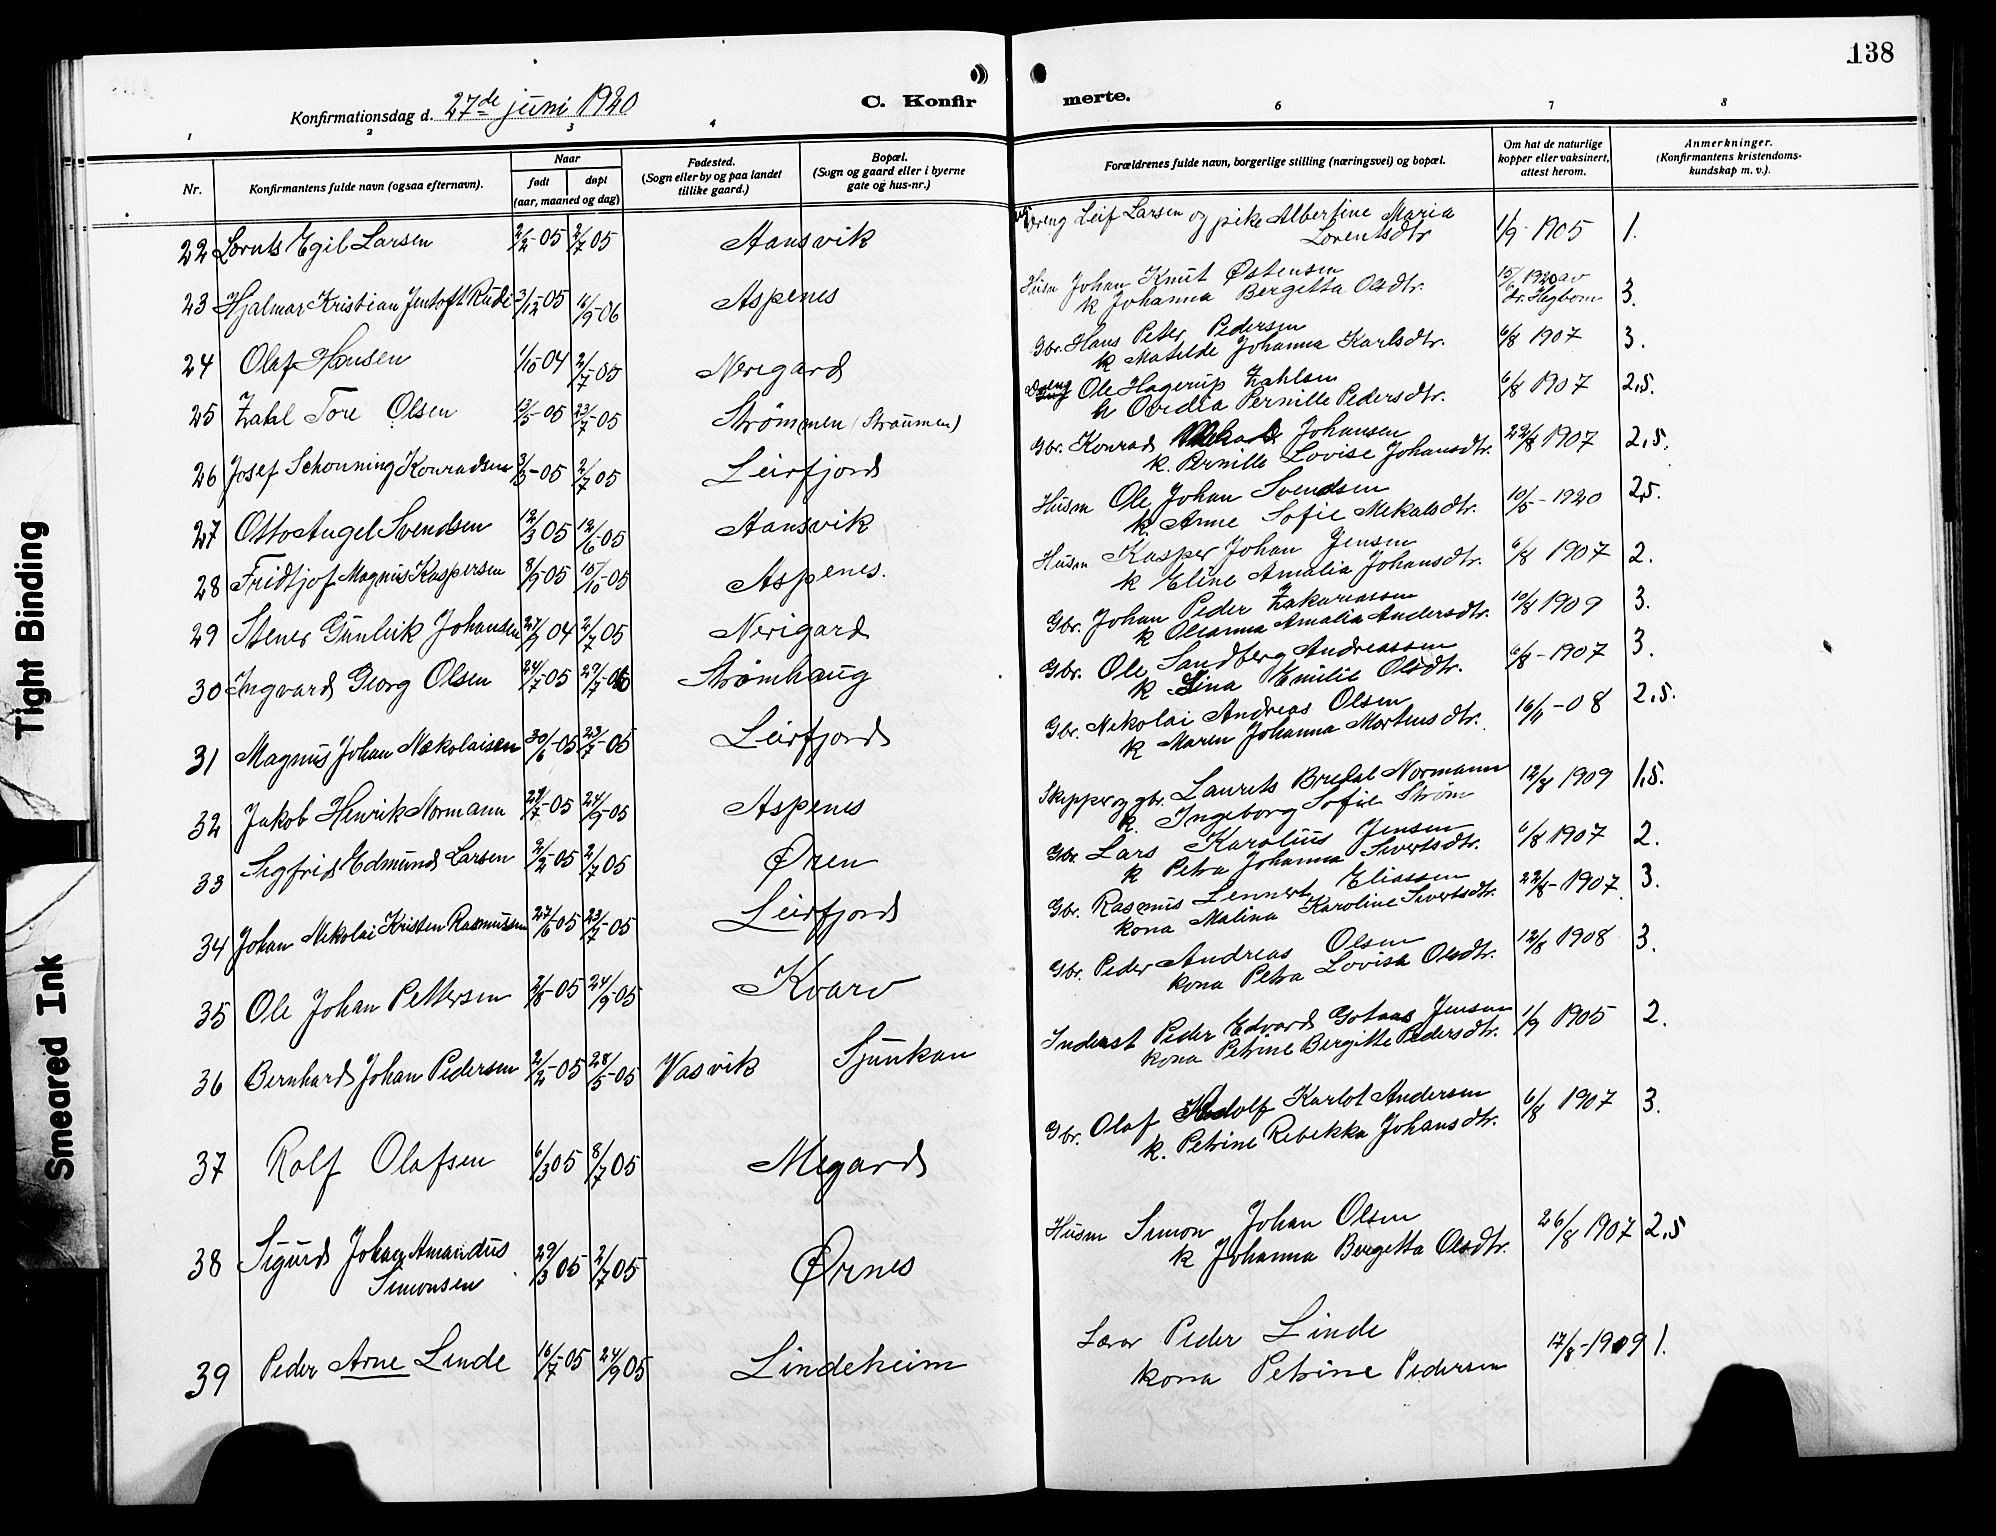 138
Konfirmationsdag d. 27de juni 1920
C. Konfir
merte.
1 2 3 4 6 7 8
Nr.
Konfirmantens fulde navn (ogsaa efternavn).
Naar
født døpt
(aar, maaned og dag)
Fødested.
(Sogn eller by og paa landet
tillike gaard.)
Bopæl.
(Sogn og gaard eller i byerne
gate og hus-nr.)
Forældrenes fulde navn, borgerlige stilling (næringsvei) og bopæl.
Om hat de naturlige
kopper eller vaksinert,
attest herom.
Anmerkninger.
(Konfirmantens kristendoms-
kundskap m. v.).
22 Lornts Egil Larsen 2/2-05 2/7 05 Aansvik Dreng Leif Larsen og pike Albertine Maria 1/9 1905 1.
Lorentsdtr
23 Hjalmar Kristian Jentoft Rudi 3/12-05 16/9-06 Aspenes Husm Johan Knut Østensen 15/6 1920 av 3.
k Johanna Bergetta Olsdtr. dr. Hegbom
24 Olaf Hansen 1/10-04 2/7-05 Nerigard Gbr. Hans Peter Pedersen 6/8 1907 3.
k Matilde Johanna Karlsdtr.
25 Zahl Tore Olsen 13/5-05 23/7-05 Strømmen (Straumen) Ole Hagerup Zahlsen 6/8 1907 2,5.
k Ovedia Pernille Pedersdtr.
26 Josef Schonning Konradsen 3/3-05 2/7 05 Leirfjord Gbr. Konrad Johansen 22/8 1907 2,5.
k. Pernille Lovise Johansdtr.
27 Otto Angel Svendsen 12/3 05 12/6-05 Aansvik Husm Ole Johan Svendsen 10/5-1920 2,5.
k Anne Sofie Mekalsdtr.
28 Fridtjof Magnus Kaspersen 8/9-05 15/10-05 Aspenes. Husm Kasper Johan Jensen 6/8 1907 2.
k Eline Amalia Johansdtr.
29 Stener Gunleik Johansen 27/9 04 2/7 05 Nerigard Gbr. Johan Peder Zakariassen 10/8 1909 3.
k Oleanna Amalia Andersdtr.
30 Ingvard Georg Olsen 24/7-05 29/7-06 Strømhaug Gbr. Ole Sandberg Andreassen 6/8-1907 3.
k Lina Emilie Olsdtr.
31 Magnus Johan Nekolaisen 30/6-05 23/7-05 Leirfjord Gbr. Nikolai Andreas Olsen 16/11-08 2,5.
k Maren Johanna Mortensdtr.
32 Jakob Henrik Normann 29/7-05 24/9-05 Aspenes Skipper og gbr. Laurits Bredal Normann 12/8 1909 1,5.
k. Ingeborg Sofie Strøm
33 Sigfrid Edmund Larsen 2/2-05 2/7 05 Øren Gbr. Lars Karolius Jensen 6/8 1907 2.
k Petra Johanna Sivertsdtr.
34 Johan Nikolai Kristen Rasmussen 27/6-05 23/7-05 Leirfjord Gbr. Rasmus Lennert Eliassen 22/8-1907. 3.
kona Malina Karoline Sivertsdtr.
35 Ole Johan Pettersen 2/8-05 24/9-05 Kvarv Gbr. Peder Andreas Olsen 12/8 1908 3.
kona Petra Lovisa Olsdtr.
36 Bernhard Johan Pedersen 2/2-05 28/5-05 Vasvik Sjunkan Inderst Peder Edvard Gotaas Jensen 1/9 1905 2.
kona Petrine Bergitte Pedersdtr.
37 Rolf Olafsen 6/3 05 8/7 05 Megard Gbr. Olaf Rudolf Karlot Andersen 6/8 1907 3.
k. Petrine Rebekka Johansdtr.
38 Sigurd Johan Amandus 29/3 05 2/7 05 Ørnes Husm Simon Johan Olsen 26/8 1907 2,5
Simonsen k Johanna Bergetta Olsdtr.
39 Peder Arne Linde 16/7-05 24/9 05 Lindeheim Lærer Peder Linde 17/8-1909 1.
kona Petrine Pedersen
Tight Binding
Smeared Ink